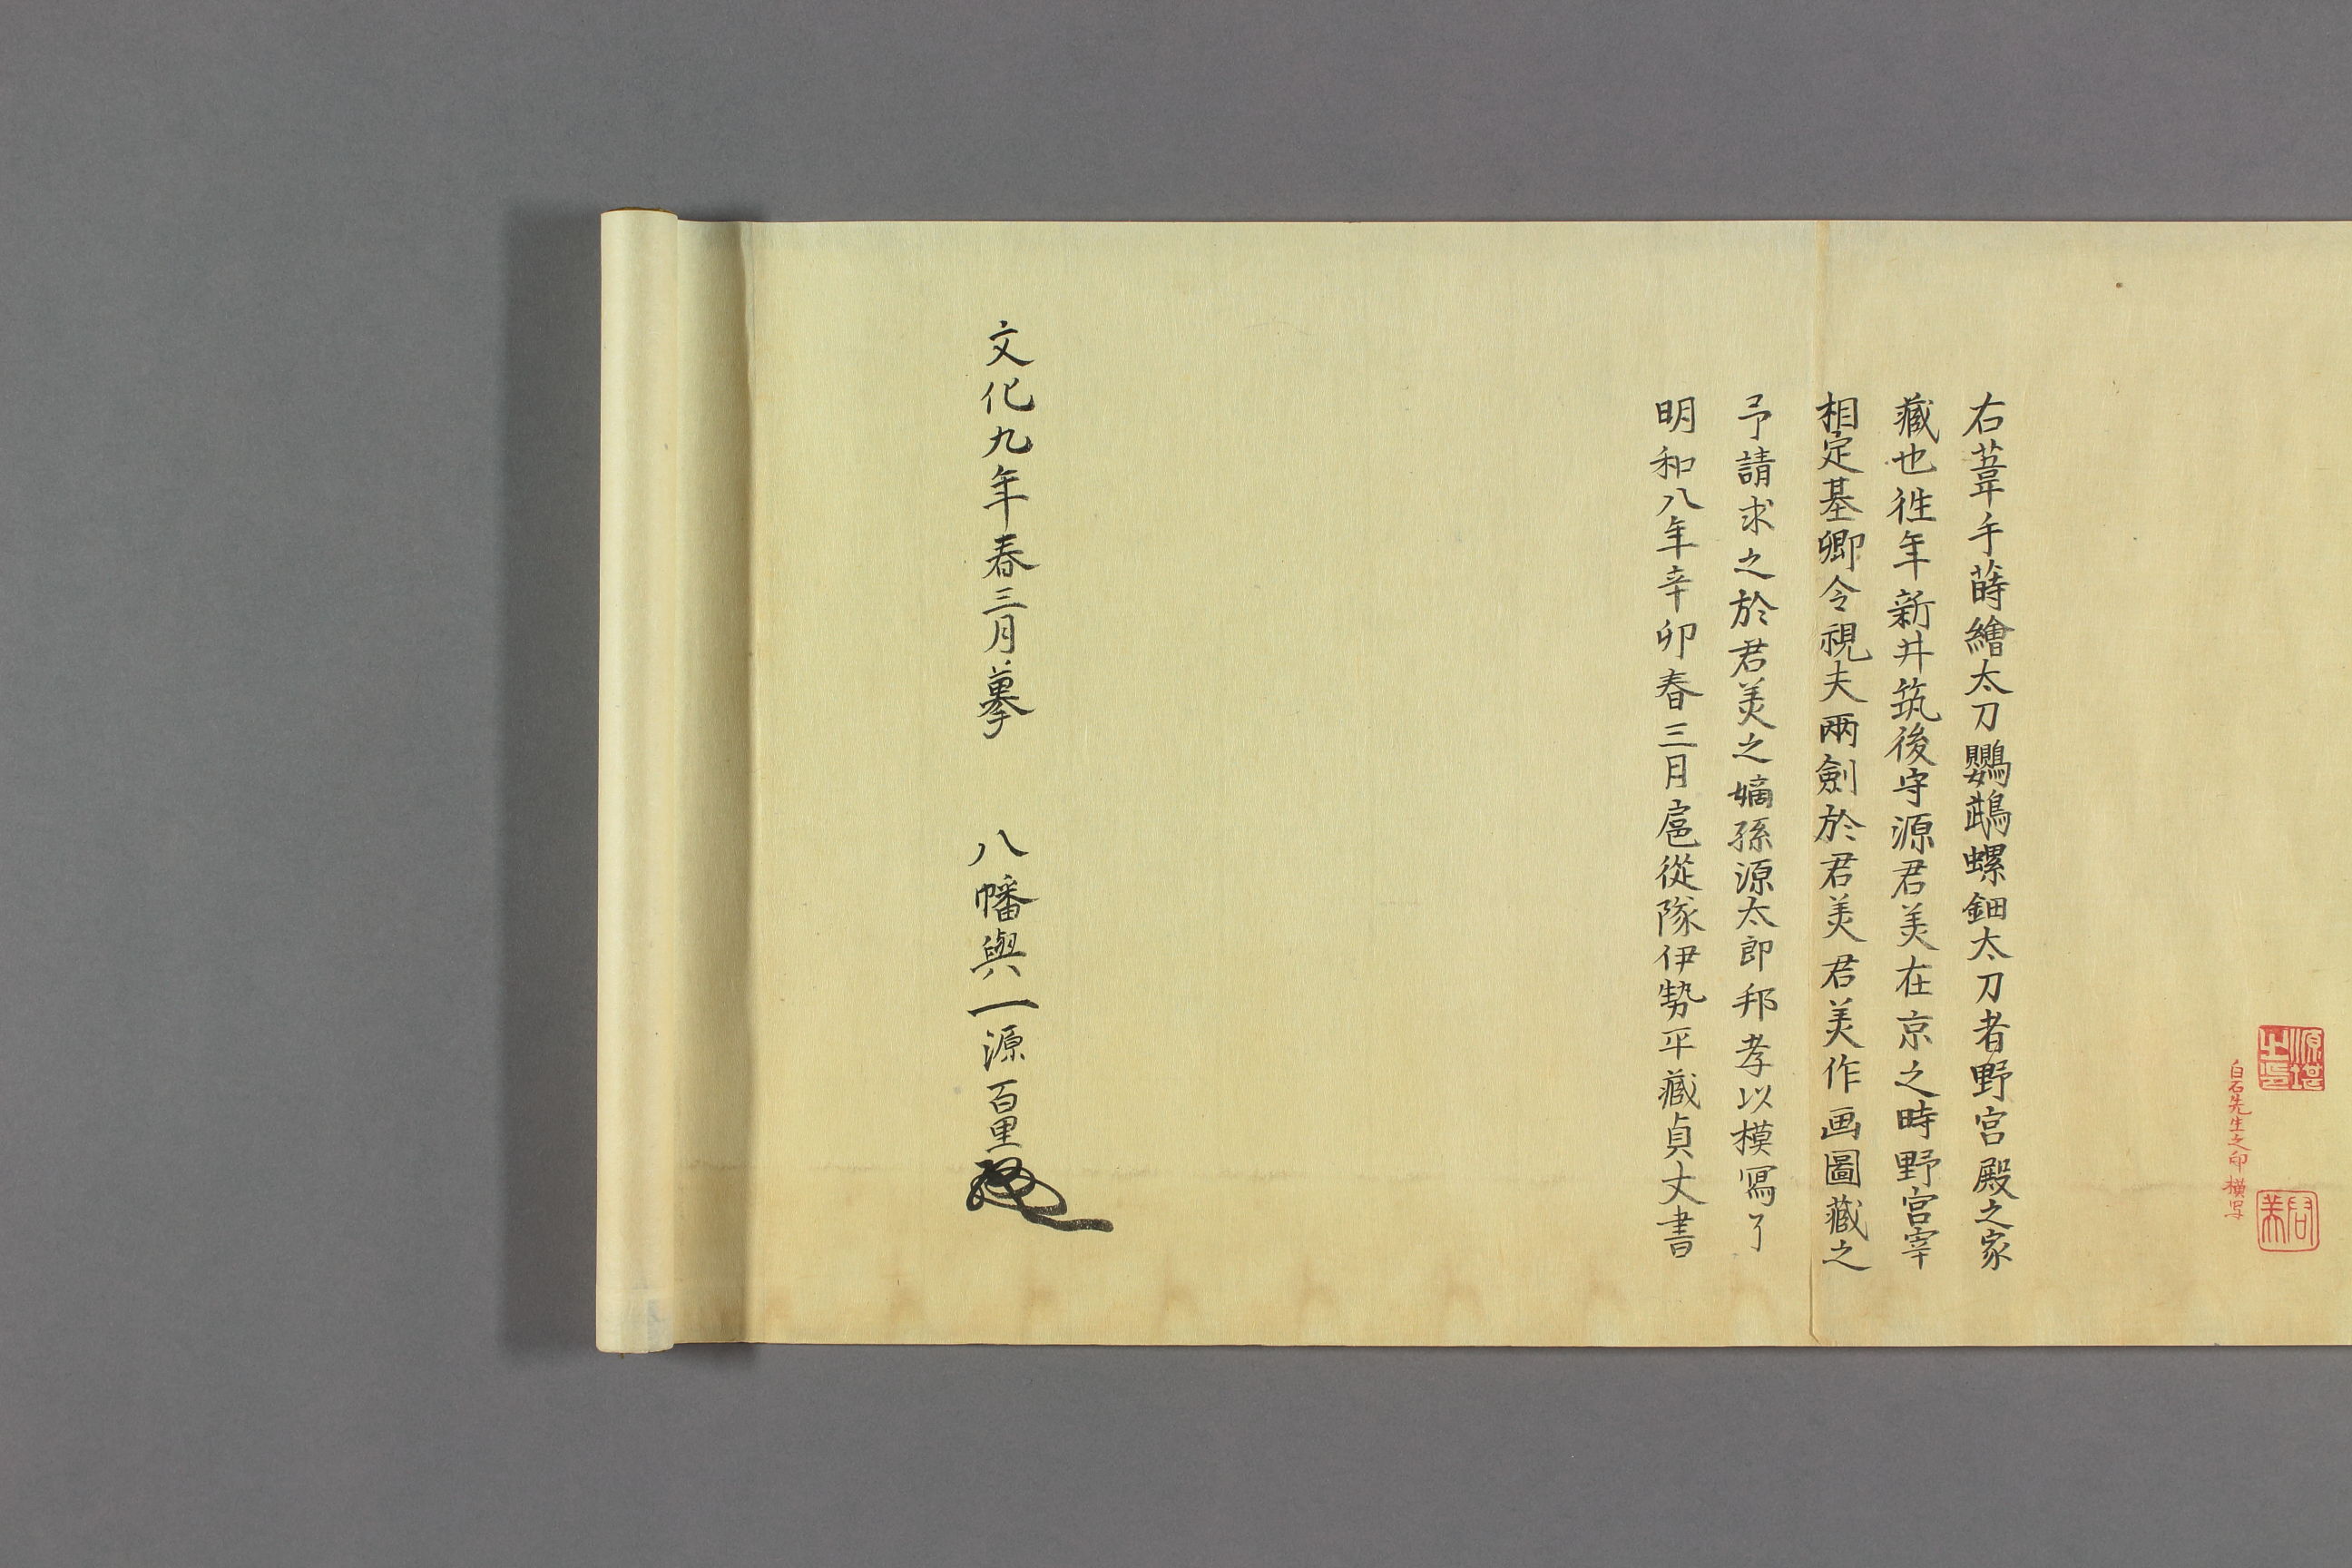 源璵之印
白石先生之印 横写
君美
右葦手蒔繪太刀鸚鵡螺鈿太刀者野宮殿之家
藏也徃年新井筑後守源君美在京之時野宮宰
相定基卿令視夫兩劍於君美君美作画圖藏之
予請求之於君美之嫡孫源太郎邦孝以模寫了
明和八年辛卯春三月扈從隊伊勢平藏貞丈書
文化九年春三月摹 八幡與一源百里